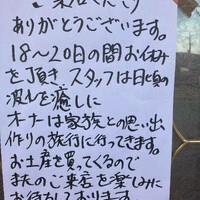 ご来店くださり
ありがとうございます。
18〜20日の間お休み
を頂き、スタッフは日頃の
疲れを癒しに
オーナーは家族との思い出
作りの旅行に行ってきます。
お土産を買ってくるので
またのご来店を楽しみに
お待ちしております